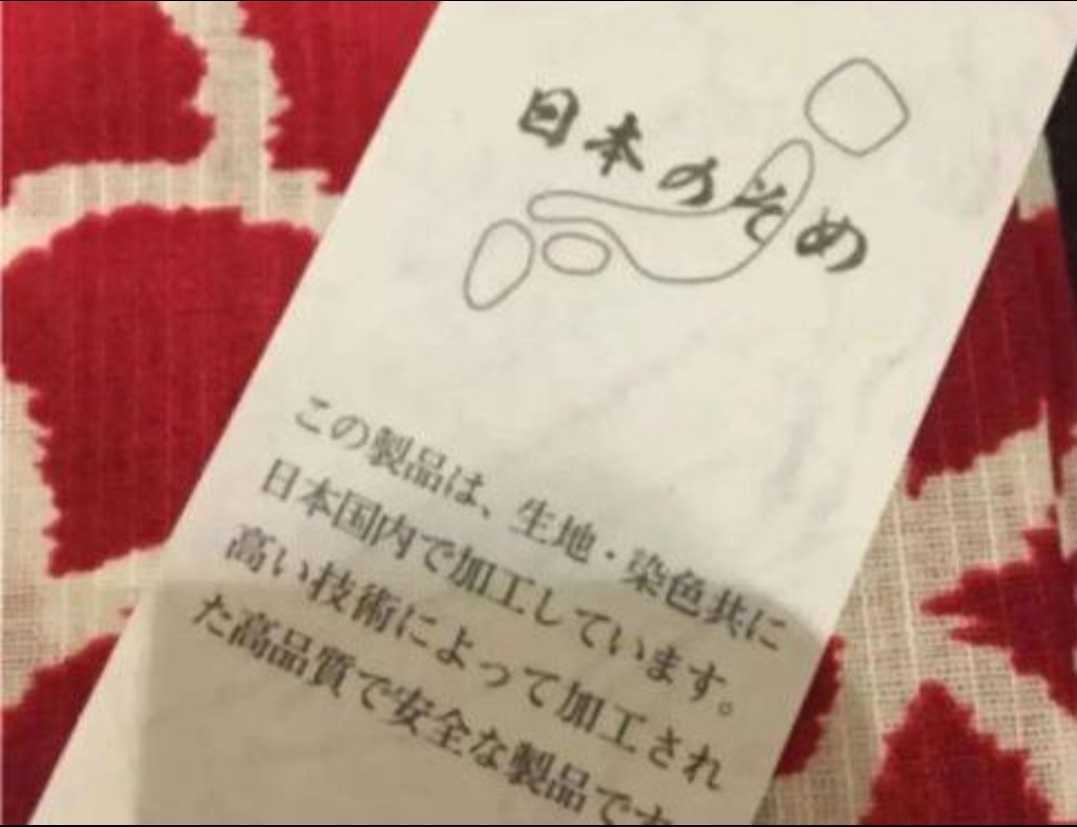 日本のそめ
この製品は、生地・染色共に
日本国内で加工しています。
高い技術によって加工され
た高品質で安全な製品です